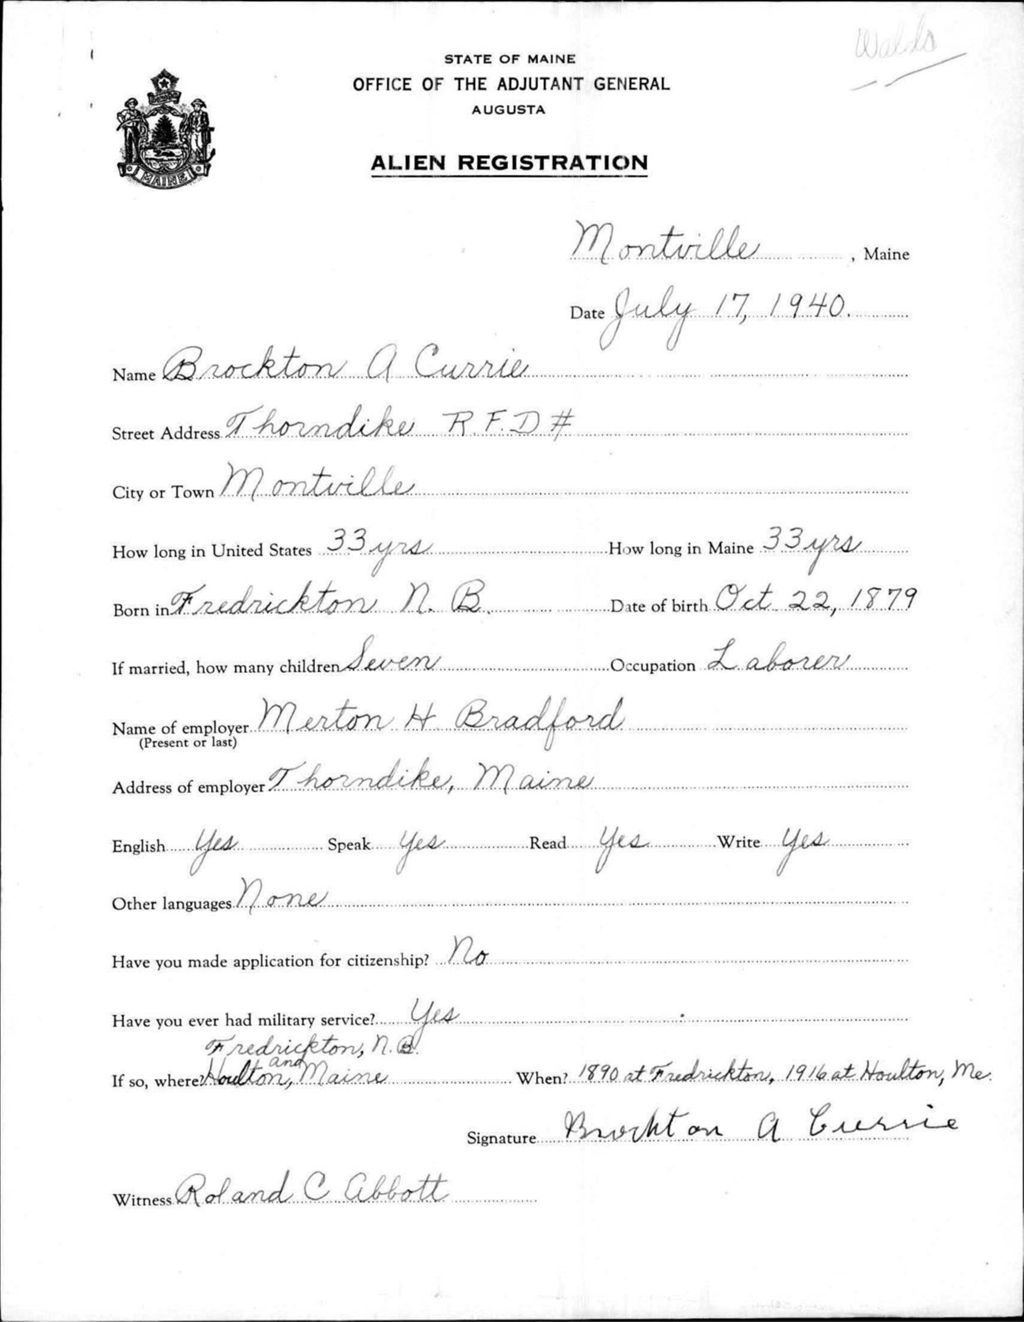 Waldo
STATE OF MAINE
OFFICE OF THE ADJUTANT GENERAL
AUGUSTA
ALIEN REGISTRATION
MAINE
Montville, Maine
Date July 17, 1940.
Name Brockton A Currie
Street Address Thorndike R.F.D #
City or Town Montville
How long in United States 33 yrs How long in Maine 33 yrs
Born in Fredrickton N. B. Date of birth Oct 22, 1879
If married, how many children Seven Occupation Laborer
Name of employer Merton H Bradford
(Present or last)
Address of employer Thorndike, Maine
English Yes Speak Yes Read Yes Write Yes
Other languages None
Have you made application for citizenship? No
Have you ever had military service? Yes
Fredrickton, N.B.
and
If so, where? Houlton, Maine When? 1890 at Fredrickton, 1916 at Houlton, Me.
Signature Brockton A Currie
Witness Roland C Abbott